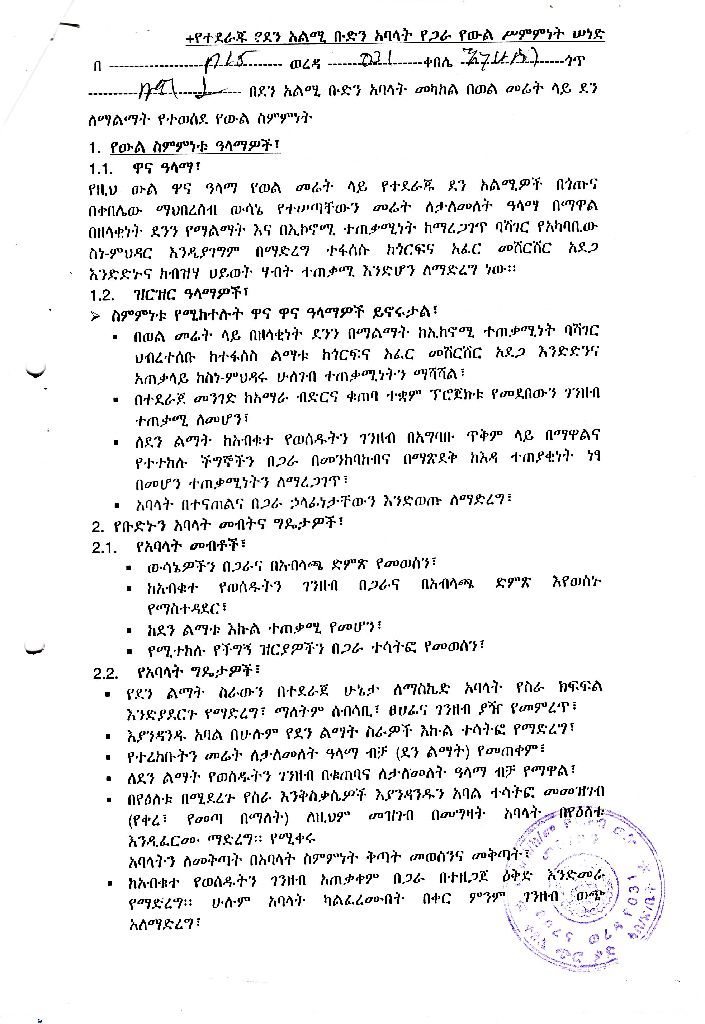 +የተደራጁ የደን አልሚ ቡድን አባላት የጋራ የውል ሥምምነት ሠነድ
በ ---------------- ወረዳ ---------------ቀበሌ ---------------ጎጥ
---------------------- በደን አልሚ ቡድን አባላት መካከል በወል መሬት ላይ ደን
ለማልማት የተወሰደ የውል ስምምነት
1. የውል ስምምነቱ ዓላማዎች፣
1.1. ዋና ዓላማ፣
የዚህ ውል ዋና ዓላማ የወል መሬት ላይ የተደራጁ ደን አልሚዎች በጎጡና
በቀበሌው ማህበረሰብ ውሳኔ የተሠጣቸውን መሬት ለታለመለት ዓላማ በማዋል
በዘላቂነት ደንን የማልማት እና በኢኮኖሚ ተጠቃሚነት ከማረጋገጥ ባሻገር የአካባቢው
ስነ-ምህዳር እንዲያገግም በማድረግ ተፋሰሱ ከጎርፍና አፈር መሸርሸር አደጋ
እንድድኑና ከብዝሃ ህይወት ሃብት ተጠቃሚ እንድሆን ለማድረግ ነው።
1.2. ዝርዝር ዓላማዎች፣
➢ ስምምነቱ የሚከተሉት ዋና ዋና ዓላማዎች ይኖሩታል፣
▪ በወል መሬት ላይ በዘላቂነት ደንን በማልማት ከኢኮኖሚ ተጠቃሚነት ባሻገር
ህብረተሰቡ ከተፋሰስ ልማቱ ከጎርፍና አፈር መሸርሸር አደጋ እንድድንና
አጠቃላይ ከስነ-ምህዳሩ ሁለገብ ተጠቃሚነትን ማሻሻል፣
▪ በተደራጀ መንገድ ከአማራ ብድርና ቁጠባ ተቋም ፕሮጀክቱ የመደበውን ገንዘብ
ተጠቃሚ ለመሆን፣
▪ ለደን ልማት ከአብቁተ የወሰዱትን ገንዘብ በአግባቡ ጥቅም ላይ በማዋልና
የተተከሉ ችግኞችን በጋራ በመንከባከብና በማጽደቅ ከእዳ ተጠያቂነት ነፃ
በመሆን ተጠቃሚነትን ለማረጋገጥ፣
▪ አባላት በተናጠልና በጋራ ኃላፊነታቸውን እንድወጡ ለማድረግ፣
2. የቡድኑን አባላት መብትና ግዴታዎች፣
2.1. የአባላት መብቶች፣
▪ ውሳኔዎችን በጋራና በአብላጫ ድምጽ የመወሰን፣
▪ ከአብቁተ የወሰዱትን ገንዘብ በጋራና በአብላጫ ድምጽ እየወሰኑ
የማስተዳደር፣
▪ ከደን ልማቱ እኩል ተጠቃሚ የመሆን፣
▪ የሚተከሉ የችግኝ ዝርያዎችን በጋራ ተሳትፎ የመወሰን፣
2.2. የአባላት ግዴታዎች፣
▪ የደን ልማት ስራውን በተደራጀ ሁኔታ ለማስኬድ አባላት የስራ ክፍፍል
እንድያደርጉ የማድረግ፣ ማለትም ሰብሳቢ፣ ፀሀፊና ገንዘብ ያዥ የመምረጥ፣
▪ እያንዳንዱ አባል በሁሉም የደን ልማት ስራዎች እኩል ተሳትፎ የማድረግ፣
▪ የተረከቡትን መሬት ለታለመለት ዓላማ ብቻ (ደን ልማት) የመጠቀም፣
▪ ለደን ልማት የወሰዱትን ገንዘብ በቁጠባና ለታለመለት ዓላማ ብቻ የማዋል፣
▪ በየዕለቱ በሚደረጉ የስራ እንቅስቃሴዎች እያንዳንዱን አባል ተሳትፎ መመዝገብ
(የቀረ፣ የመጣ በማለት) ለዚህም መዝገብ በመግዛት አባላት በየዕለቱ
እንዲፈርሙ ማድረግ። የሚቀሩ
አባላትን ለመቅጣት በአባላት ስምምነት ቅጣት መወሰንና መቅጣት፣
▪ ከአብቁተ የወሰዱትን ገንዘብ አጠቃቀም በጋራ በተዘጋጀ ዕቅድ እንድመራ
የማድረግ። ሁሉም አባላት ካልፈረሙበት በቀር ምንም ገንዘብ ወጭ
አለማድረግ፣